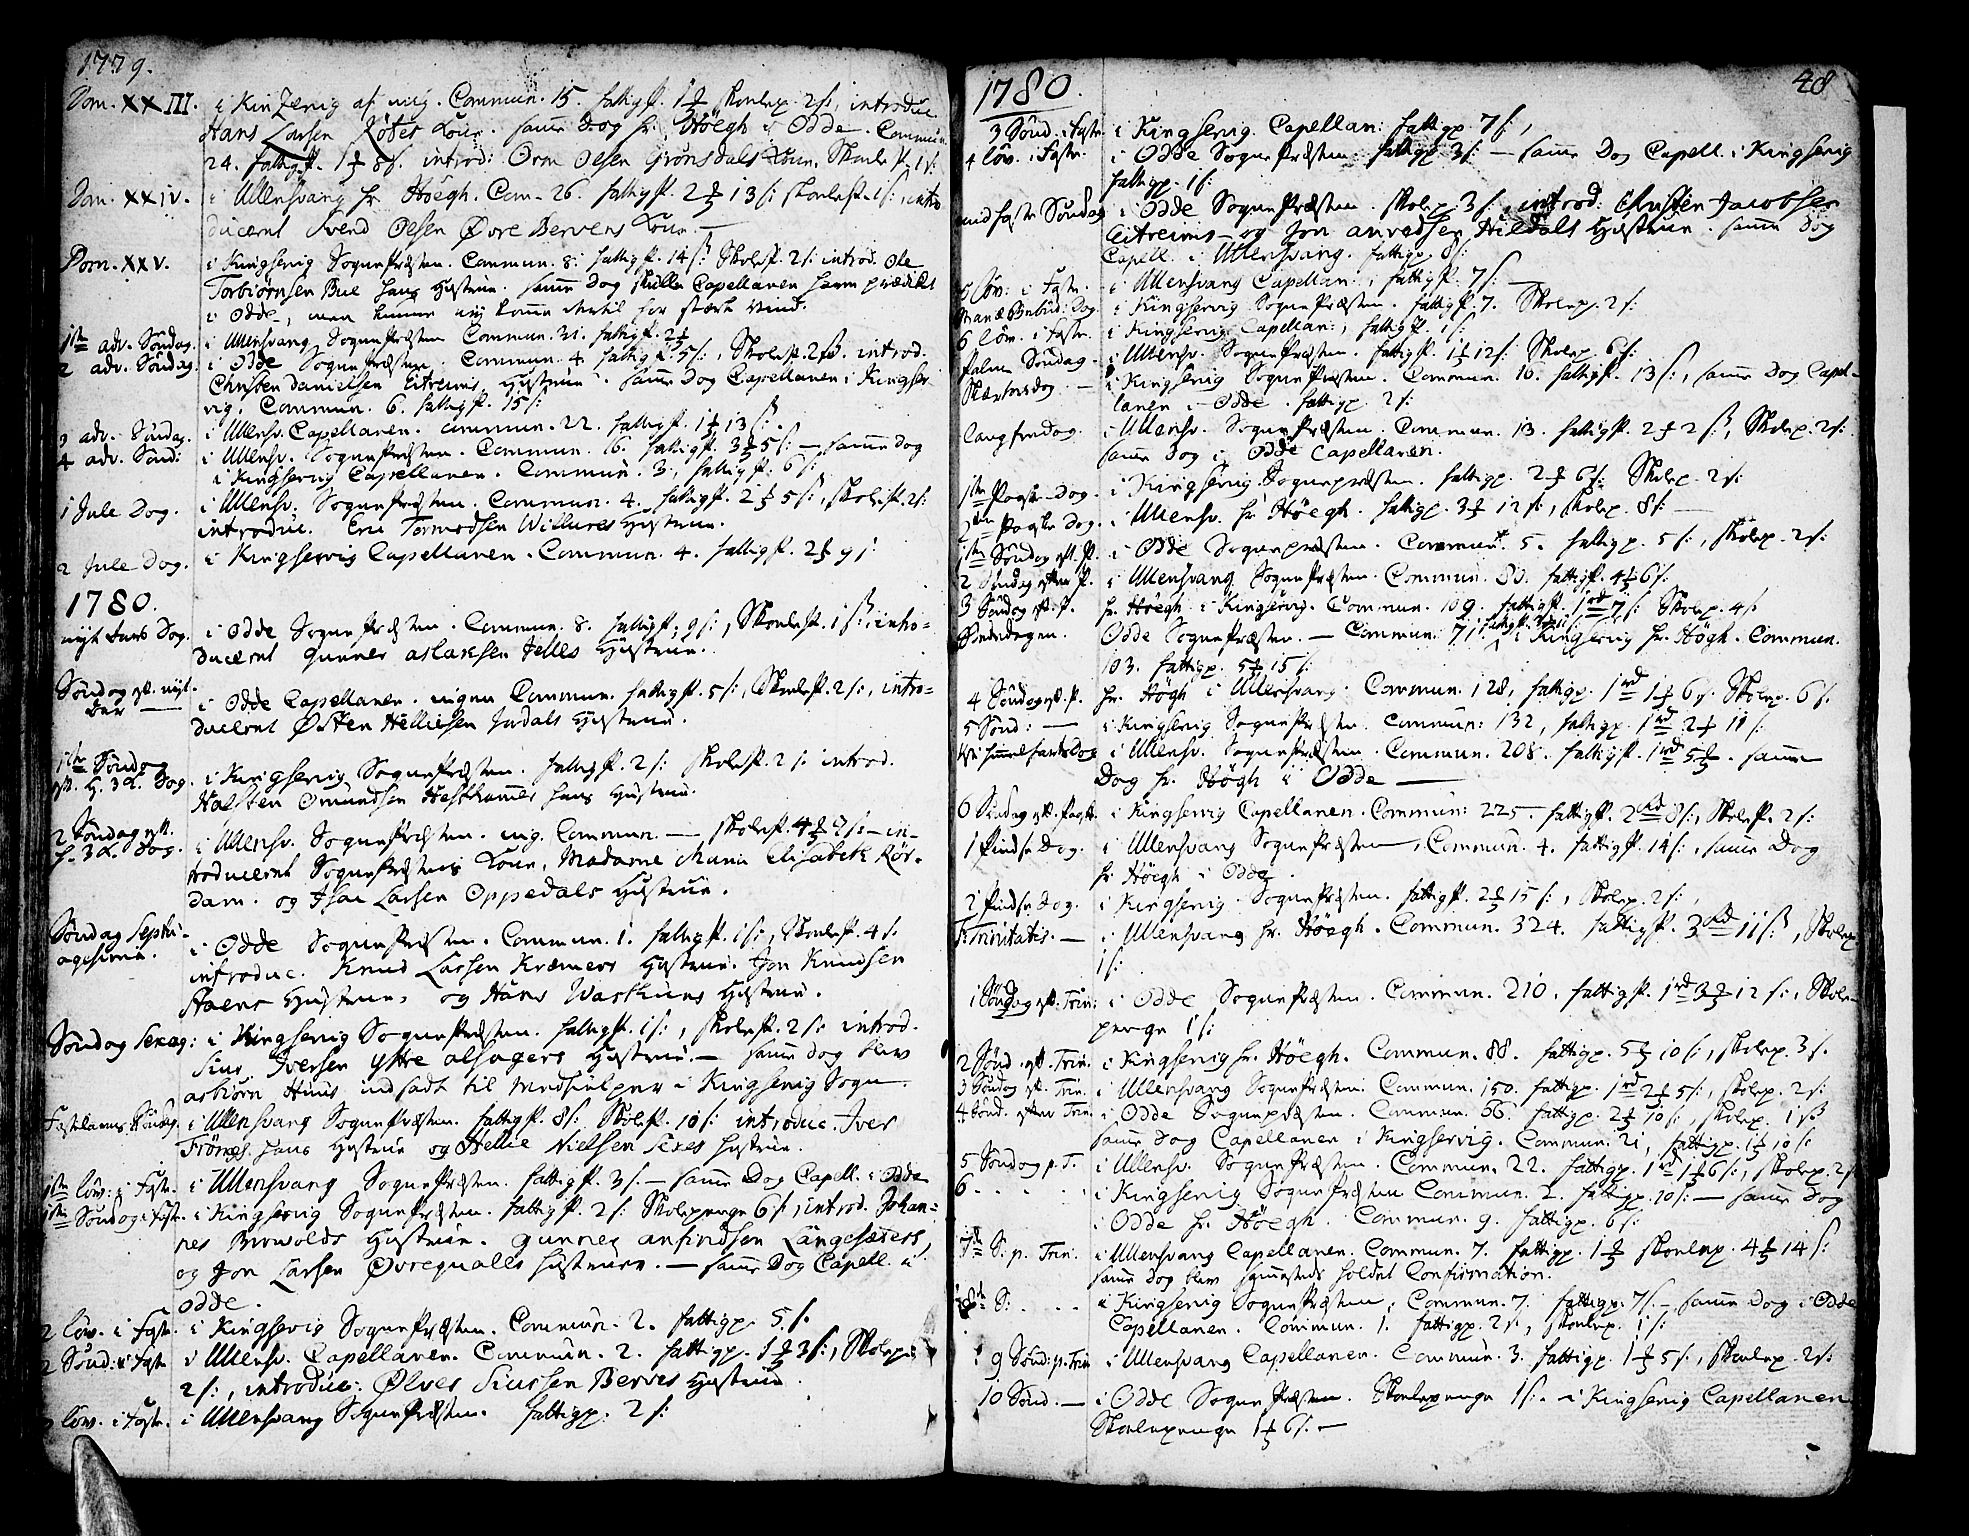 1779.
Dom. XXIII. i Kinzervig af mig. Commun. 15. fattigp. 1 skolep. 2 s, introduc.
Hans Larsen Lötes Kone. samme Dag hr. Höegh i Odde. Commun.
24. fattigp. 8 s. introd: Orm Olsen Grönsdals Kone. Skolep. 1 s:
Dom. XXIV. i Ullensvang hr Höegh. Com. 26. fattigp. 2 13 s: skolep. 1 s:, intro
duceret Svend Olsen Øvre Bervens Kone. —
Dom. XXV. i Kingservig Sognepræsten. Commun. 8. fattigp. 14 s: Skolep. 2 s: introd. Ole
Torbiörnsen Bue hans Hustrue. samme Dag skulle Capellanen have prædiket
i Odde, men kunne ej komme dertil for stærk Vind.
1ste adv. Söndag. i Ullensvang Sognepræsten Commun. 21. fattigp. 2
2 adv. Söndag. i Odde Sognepræsten, Commun. 4 fattigp. 5 s:, Skolep. 2 s. introd.
Christen Danielsen Eitreims Hustrue. samme Dag Capellanen i Kingser
vig, Commun. 6. fattigp. 15 s:
3 adv. Söndag. i Ullensv. Capellanen. Commun. 22. fattigp. 1 13 s.
4 adv. Sönd: i Ullensv. Sognepræsten. Commun. 16. fattigp. 3 5 s: — samme Dag
i Kingservig Capellanen. Commun. 3, fattigp. 6 s:
1 Jule Dag. i Ullensv. Sognepræsten. Commun. 4. fattigp. 2 5 s:, skolep. 2 s:
introduc. Eric Tormodsen Willures Hustrue.
2 Jule Dag. i Kingservig Capellanen. Commun. 4. fattigp. 2 9 s:
1780.
nyt Aars Dag. i Odde Sognepræsten. Commun. 8. fattigp. 9 s:, Skolep. 1 s:, intro=
duceret Gunner Aslaksen Jelles Hustrue.
Söndag eft. nyt-
Aar — i Odde Capellanen. ingen Commun. fattigp. 5 s:, Skolep. 2 s:, intro=
duceret Østen Helliesen Jordals Hustrue.
1ste Söndag
eft. H. 3 K. Dag. i Kingservig Sognepræsten. fattigp. 2 s: skolep. 2 s: introd.
Halsten Omundsen Hesthamer hans Hustrue.
2 Söndag eft.
H. 3 K. Dag. i Ullensv. Sognepræsten. ing. Commun. — skolep. 4 9 s: — in-
troduceret Sognepræstens Kone, Madame Maria Elisabeth Rör-
dam. og Isac Larsen Oppedals Hustrue.
Söndag Septu-
agesima. i Odde Sognepræsten. Commun. 1. fattigp. 1 s:, Skolep. 4 s.
introduc. Knud Larsen Kræmers Hustrue. Jon Knudsen
Hustrue, og Hans Hustrue.
Söndag Sexag: i Kingservig Sognepræsten. fattigp. 1 s:, skolep. 2 s: introd.
Siur Iversen Ystre Alsagers Hustrue. — samme Dag blev
Asbiörn Huus indsadt til Medhielper i Kingservig Sogn.
Fastelavns Söndag. i Ullensvang Sognepræsten. fattigp. 8 s. Skolep. 10 s: introduc. Iver
Frönes hans Hustrue og Hellie Nielsen Sexes Hustrue.
1ste löv. i Fast. i Ullensvang Sognepræsten. fattigp. 3 s. — samme Dag Capell. i Odde
1ste Söndag i Fast. i Kingservig Sognepræsten. fattigp. 2 s: Skolepenge 6 s, introd. Johan=
nes Hustrue. Gunner Anfindsen Langesæters,
og Jon Larsen Øvrequalls Hustruer. — samme Dag Capell. i
Odde.
2 löv. i Fast. i Kingservig Sognepræsten. Commun. 2. fattigp. 5 s.
2 Sönd: i Fast i Ullensv. Capellanen. Commun. 2. fattigp. 1 3 s:, Skolep.
2 s:, introduc: Ølver Siursen Berves Hustrue.
löv. i Fast. i Ullensvang Sognepræsten. fattigp. 2 s:
48
1780.
3 Sönd. i Fast. i Kingservig. Capellan: fattigp. 7 s:,
4 löv. i Fast. i Odde Sognepræsten. fattigp. 3 s: — samme Dag Capell. i Kingservig
fattigp. 1 s:
midfaste Söndag i Odde Sognepræsten. skolep. 3 s, introd: Christen Jacobsen
Eitreims og Jon Hildals Hustrue. samme Dag
Capell. i Ullensvang. fattigp. 8 s:
5 löv: i Fast. i Ullensvang Capellan:, fattigp. 7 s. —
Mariæ Bebud: Dag i Kingservig Sognepræsten. fattigp. 7. Skolep. 2 s:
6 löv. i Faste. i Kingservig Capellan:, fattigp. 1 s:
Palme Söndag. i Ullensv. Sognepræsten. fattigp. 1 12 s: Skolep. 6 s:
Skærtorsdag — i Kingservig Sognepræsten. Commun. 16. fattigp. 13 s:, samme Dag Capel-
lanen i Odde. fattigp. 2 s:
langfredag. i Ullensv. Sognepræsten. Commun. 13. fattigp. 2 2 s, Skolep. 2 s:
samme Dag i Odde Capellanen.
1ste Paaske Dag. i Kingservig Sognepræsten. fattigp. 2 6 s: Skolep. 2 s:
Paaske Dag. i Ullensv. hr Höegh. fattigp. 3 12 s:, skolep. 8 s: —
1ste Söndag eft. P. i Odde Sognepræsten. Commun. 5. fattigp. 5 s:, skolep. 2 s:
2 Söndag efter P. i Ullensvang Sognepræsten. Commun. 80. fattigp. 4 6 s:
3 Söndag eft. P. hr. Höegh i Kingservig. Commun. 109. fattigp. 1 rd 7 s: Skolep. 4 s
Bededagen. Odde Sognepræsten. — Commun: 71. i Kingservig hr. Högh. Commun.
103. fattigp. 5 15 s:
4 Söndag eft. P. hr. Högh i Ullensvang. Commun. 128, fattigp. 1 rd 1 6 s. Skolep. 6 s.
5 Sönd: — i Kingservig Sognepræsten. Commun: 132, fattigp. 1 rd 2 11 s:
Kr. Himmelfarts Dag i Ullensv. Sognepræsten. Commun. 208. fattigp. 1 rd 5. samme
Dag hr. Högh i Odde —
6 Söndag eft. Paask. i Kingservig Capellanen. Commun: 225. fattigp. 2 rd 8 s:, Skolep. 2 s:
1 Pindse Dag. i Ullensvang Sognepræsten, Commun. 4. fattigp. 14 s:, samme Dag
hr Höegh i Odde.
2 Pindse Dag. i Kingservig. Sognepræsten. fattigp. 2 15 s:, Skolep. 2 s:,
F: Trinitatis. — i Ullensvang hr. Höegh. Commun. 324. fattigp. 3 rd 11 s:, Skolep.
1 s:
1 Söndag eft. Trin: i Odde Sognepræsten. Commun. 210. fattigp. 1 rd 3 12 s:, Skole-
penge 1 s:
2 Sönd. eft. Trin. i Kingservig hr. Höegh. Commun. 88. fattigp. 5 10 s:, skolep. 3 s.
3 Söndag eft. Trin. i Ullensvang Sognepræsten. Commun. 150. fattigp. 1 rd 2 5 s:, skolep. 2 s:
4 Sönd. efter Trin. i Odde Sognepræsten. Commun. 66. fattigp. 2 10 s:, skolep. 1 s
samme Dag Capellanen i Kingservig. Commun. 21, fattigp. 1 10 s:
5 Söndag p. T. i Ullensv. Sognepræsten. Commun. 22. fattigp. 1 rd 1 6 s:, skolep. 2 s
6 . . . . . i Kingservig Sognepræsten Commun. 2. fattigp. 10 s: — samme Dag
i Odde hr. Höegh. Commun. 9. fattigp. 6 s:
7de S: p. Trin. i Ullensvang Capellanen. Commun. 7. fattigp. 1 skolep. 4 14 s:
samme Dag blev sammesteds holdet Confirmation.
8de S: . . . i Kingservig Sognepræsten, Commun. 7. fattigp. 7 s: — samme Dag i Odde
Capellanen. Commun. 1. fattigp. 2 s:, skolep. 1 s:
9 Sönd: p. Trin i Ullensvang Capellanen. Commun. 3. fattigp. 1 5 s:, skolep. 2 s:
10 Sönd. — i Odde Sognepræsten. Skolepenge 1 s:. — i Kingservig Capellanen
Skolepenge 1 6 s. —